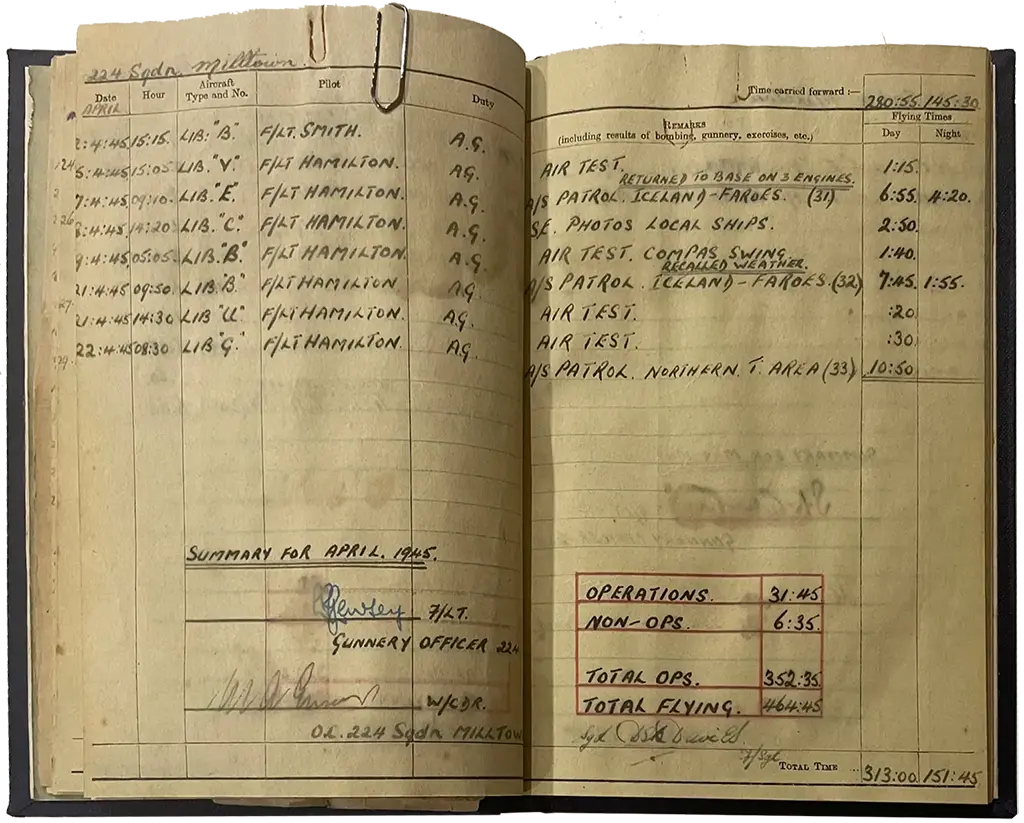 224 Sqdn. Milltown.
Date Hour Aircraft Type and No. Pilot Duty
APRIL
2:4:45 15:15. LIB: "B." F/LT. SMITH. A.G.
5:4:45 15:05 LIB. "V." F/LT HAMILTON. AG.
7:4:45 09:10. LIB. "E." F/LT HAMILTON. A.G.
8:4:45 14:20 LIB. "C." F/LT HAMILTON. A.G.
9:4:45 05:05. LIB. "B." F/LT HAMILTON. A.G.
21:4:45 09:50. LIB. "B." F/LT HAMILTON. AG
21:4:45 14:30 LIB "U." F/LT HAMILTON. AG.
22:4:45 08:30 LIB "G." F/LT HAMILTON. AG.
SUMMARY FOR APRIL. 1945.
F/LT.
GUNNERY OFFICER 224
W/CDR.
O.C. 224 Sqdn MILLTOW
Time carried forward :— 280:55. 145:30
REMARKS
(including results of bombing, gunnery, exercises, etc.)
Flying Times
Day Night
AIR TEST. 1:15.
RETURNED TO BASE ON 3 ENGINES.
A/S PATROL. ICELAND-FAROES. (31) 6:55 4:20.
PHOTOS LOCAL SHIPS. 2:50.
AIR TEST. COMPAS SWING. 1:40.
RECALLED WEATHER.
A/S PATROL. ICELAND-FAROES. (32) 7:45 1:55.
AIR TEST. :20.
AIR TEST. :30.
A/S PATROL. NORTHERN. T. AREA (33) 10:50.
OPERATIONS. 31:45
NON-OPS. 6:35.
TOTAL OPS. 352:35.
TOTAL FLYING. 464:45
Sgd Davies.
F/Sgt
TOTAL TIME ... 313:00 151:45